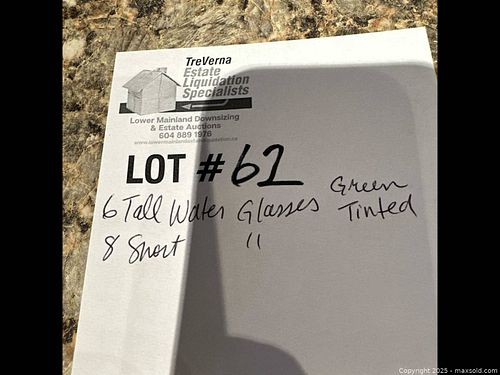 TreVerna
Estate
Liquidation
Specialists
Lower Mainland Downsizing
& Estate Auctions
604 889 1976
www.lowermainlandestateliquidation.ca
LOT #62
6 Tall Water Glasses Green Tinted
8 Short "
Copyright 2025 - maxsold.com